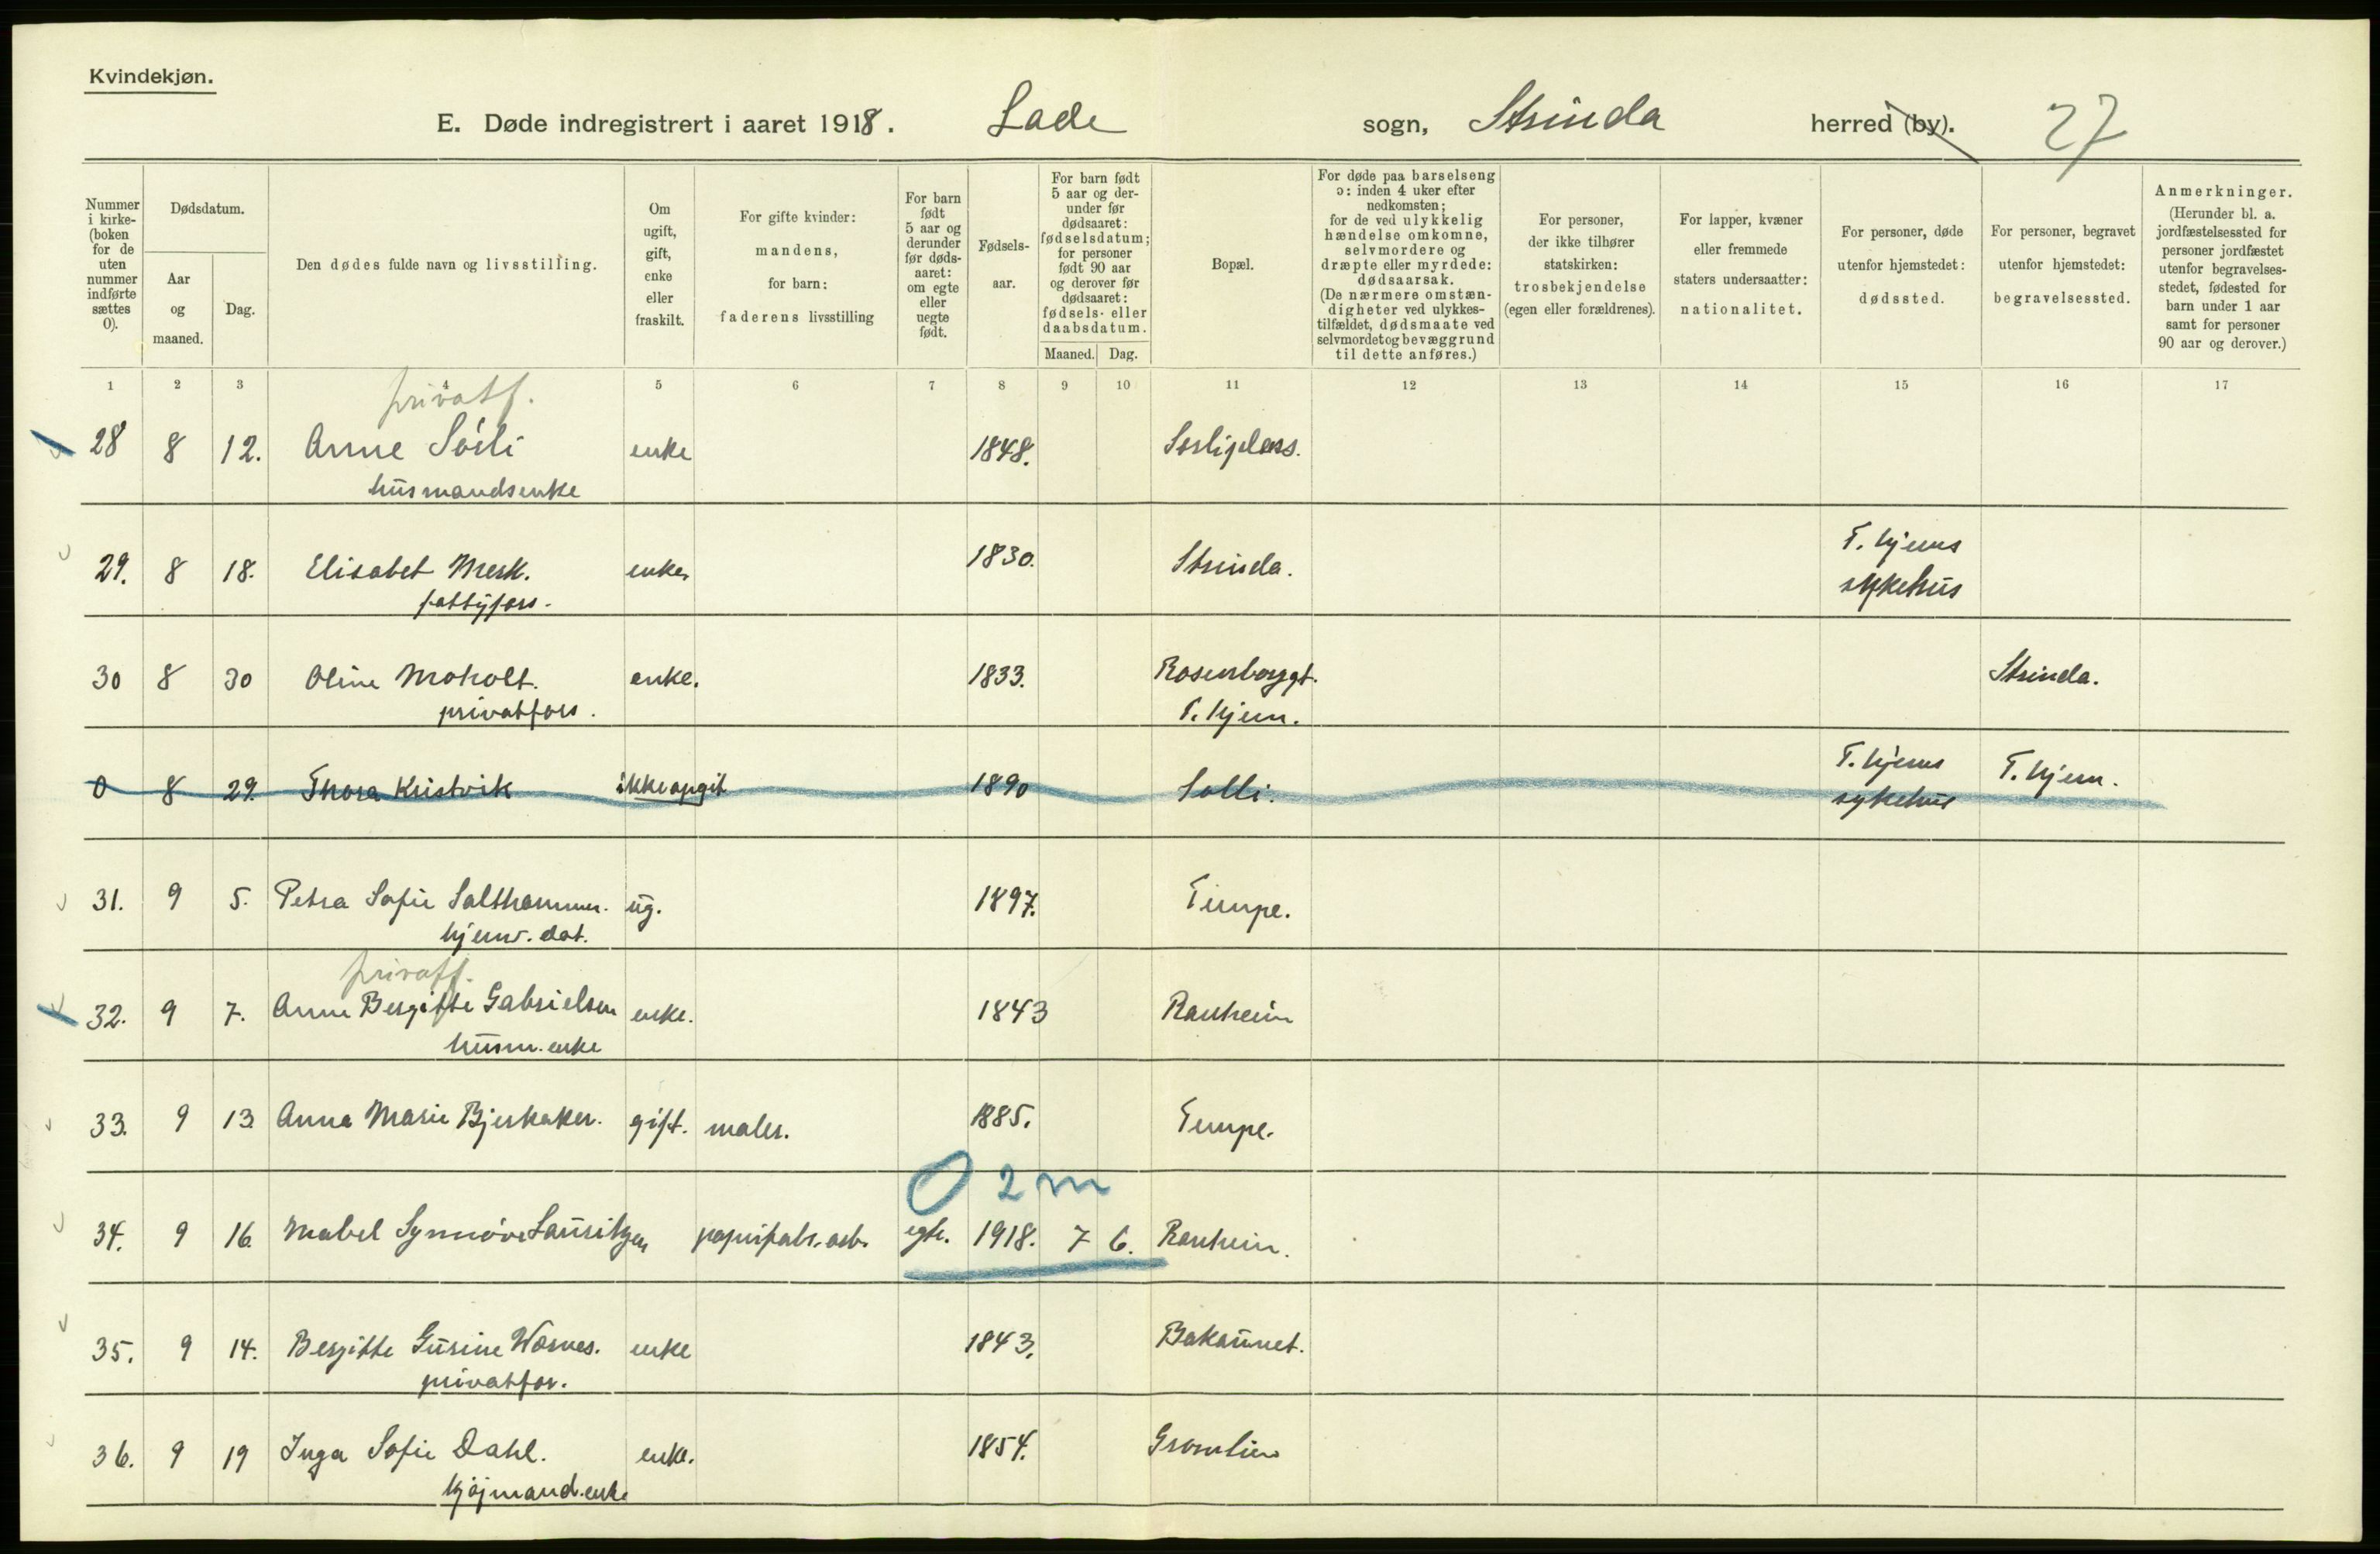 Kvindekjøn.
E. Døde indregistrert i aaret 1918. Lade sogn, Strinda herred (by). 27
Nummer i kirkeboken for de uten nummer indførte sættes 0).
Dødsdatum.
Aar og maaned.
Dag.
Den dødes fulde navn og livsstilling.
Om ugift, gift, enke eller fraskilt.
For gifte kvinder: mandens, for barn: faderens livsstilling
For barn født 5 aar og derunder før dødsaaret: om egte eller uegte født.
Fødselsaar.
For barn født 5 aar og derunder før dødsaaret: fødselsdatum; for personer født 90 aar og derover før dødsaaret: fødsels- eller daabsdatum.
Maaned. Dag.
Bopæl.
For døde paa barselseng ɔ: inden 4 uker efter nedkomsten; for de ved ulykkelig hændelse omkomne, selvmordere og dræpte eller myrdede: dødsaarsak. (De nærmere omstændigheter ved ulykkestilfældet, dødsmaate ved selvmordet og bevæggrund til dette anføres.)
For personer, der ikke tilhører statskirken: trosbekjendelse (egen eller forældrenes).
For lapper, kvæner eller fremmede staters undersaatter: nationalitet.
For personer, døde utenfor hjemstedet: dødssted.
For personer, begravet utenfor hjemstedet: begravelsessted.
Anmerkninger. (Herunder bl. a. jordfæstelsessted for personer jordfæstet utenfor begravelsesstedet, fødested for barn under 1 aar samt for personer 90 aar og derover.)
1 2 3 4 5 6 7 8 9 10 11 12 13 14 15 16 17
privatf.
28 8 12. Anne Sörli enke 1848. Sørliplass.
husmandsenke
29. 8 18. Elisabet Merk. enke 1830. Strinda. T.hjems
fattigfors. sykehus
30 8 30 Oline Moholt. enke. 1833. Rosenborggt. Strinda.
privatfors. T.hjem.
0 8 29. Thora Kristvik ikke opgit 1890 Solli. T.hjems sykehus T.hjem.
31. 9 5. Petra Sofie Salthammer. ug. 1897. Tempe.
hjemv. dat.
privatf.
32. 9 7. Anne Bergitte Gabrielsen enke. 1843 Ranheim
husm. enke
33. 9 13 Anna Marie Bjerkaker. gift. maler. 1885. Tempe.
0 2 m
34. 9 16. Mabel Synnöve Lauritzen papirfabr. arb. egte. 1918. 7 6. Ranheim.
35. 9 14. Bergitte Gurine Wærnes. enke 1843. Bakaunet.
privatfor.
36. 9 19 Inga Sofie Dahl. enke. 1854. Gramlien
kjøjmand.enke